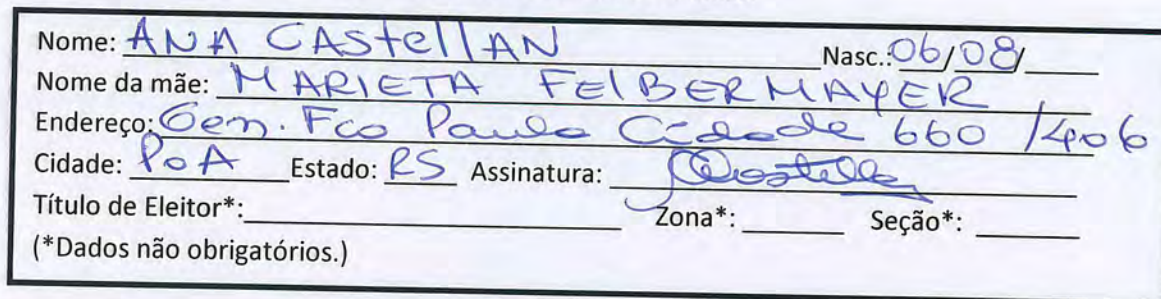 Nome: ANA CAStellAN Nasc.: 06/08/
Nome da mãe: MARIETA FElBERMAYER
Endereço: Gen. Fco Paulo Cidade 660 /406
Cidade: PoA Estado: RS Assinatura:
Título de Eleitor*: Zona*: Seção*:
(*Dados não obrigatórios.)